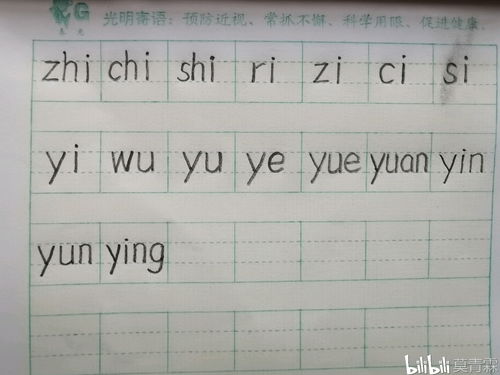 光明寄语：预防近视、常抓不懈、科学用眼、促进健康。
zhi chi shi ri zi ci si
yi wu yu ye yue yuan yin
yun ying
bilibili 莫青霖